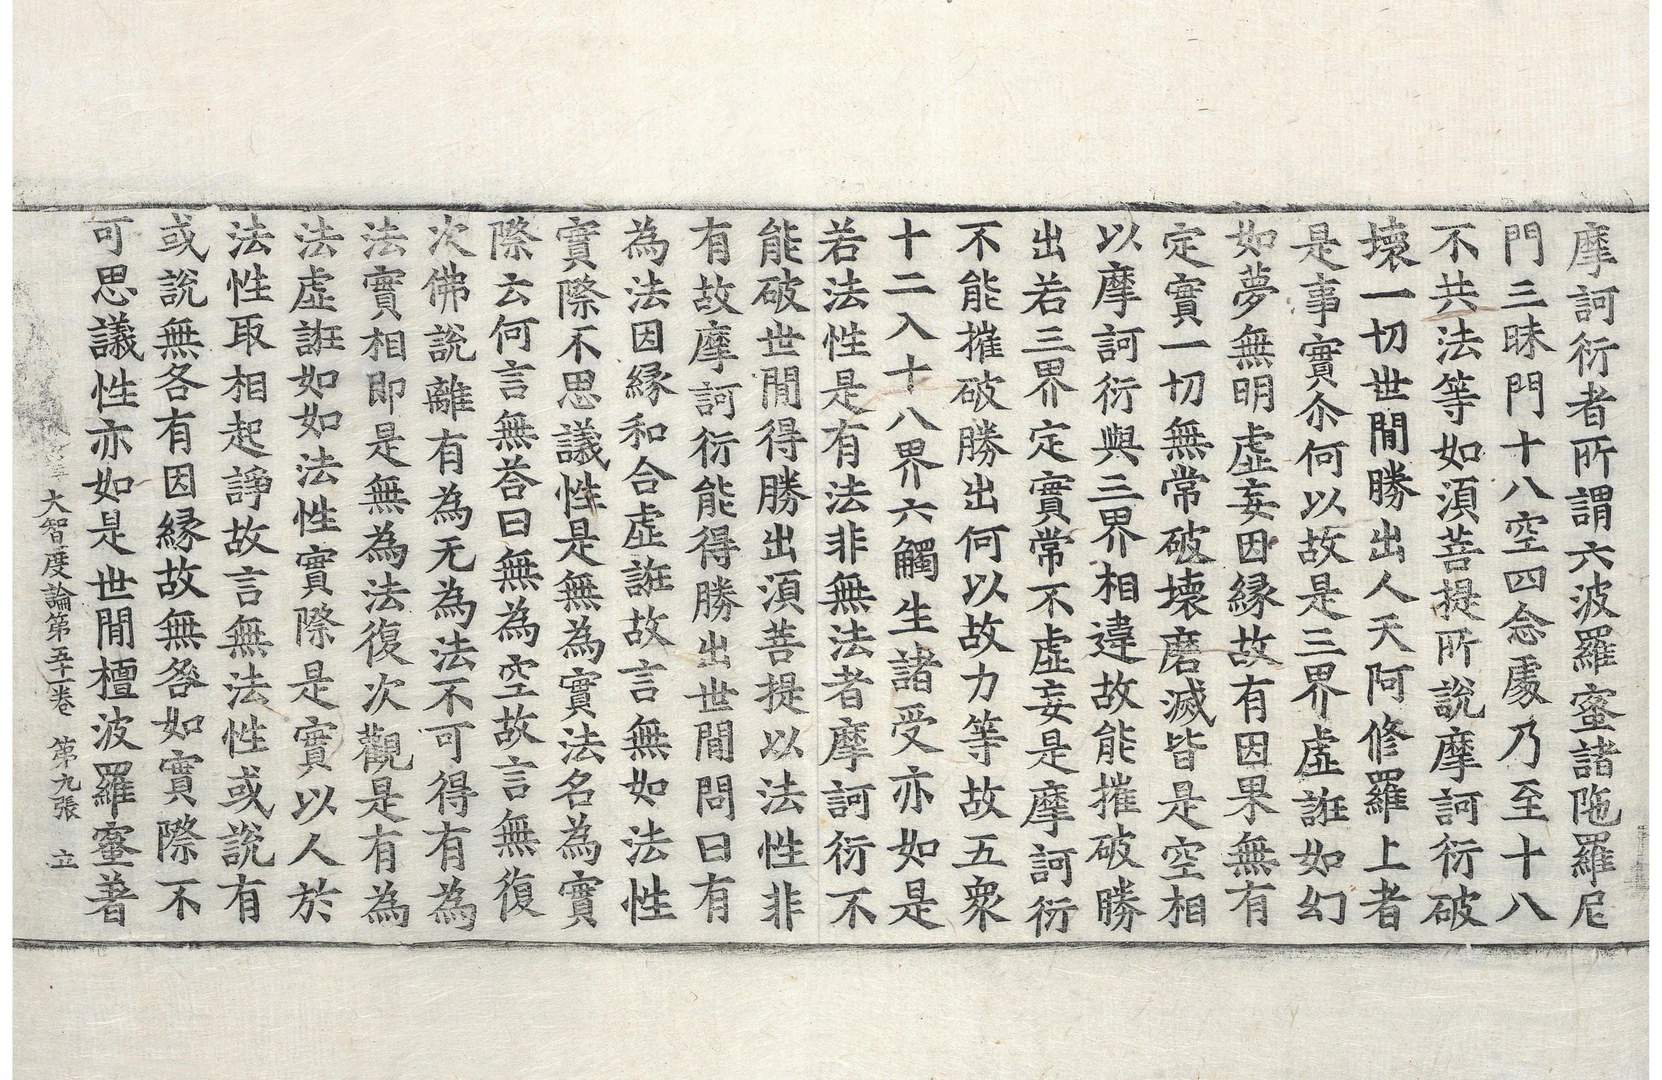 摩訶衍者所謂六波羅蜜諸陁羅尼
門三昧門十八空四念處乃至十八
不共法等如湏菩提所說摩訶衍破
壞一切世閒勝出人天阿修羅上者
是事實尒何以故是三界虛誑如幻
如夢無明虛妄因緣故有因果無有
定實一切無常破壞磨滅皆是空相
以摩訶衍與三界相違故能摧破勝
出若三界定實常不虛妄是摩訶衍
不能摧破勝出何以故力等故五衆
十二入十八界六觸生諸受亦如是
若法性是有法非無法者摩訶衍不
能破世閒得勝出湏菩提以法性非
有故摩訶衍能得勝出世閒問曰有
為法因緣和合虛誑故言無如法性
實際不思議性是無為實法名為實
際云何言無荅曰無為空故言無復
次佛說離有為无為法不可得有為
法實相即是無為法復次觀是有為
法虛誑如如法性實際是實以人於
法性取相起諍故言無法性或說有
或說無各有因緣故無咎如實際不
可思議性亦如是世閒檀波羅蜜著
大智度論第五十一卷 第九張 立